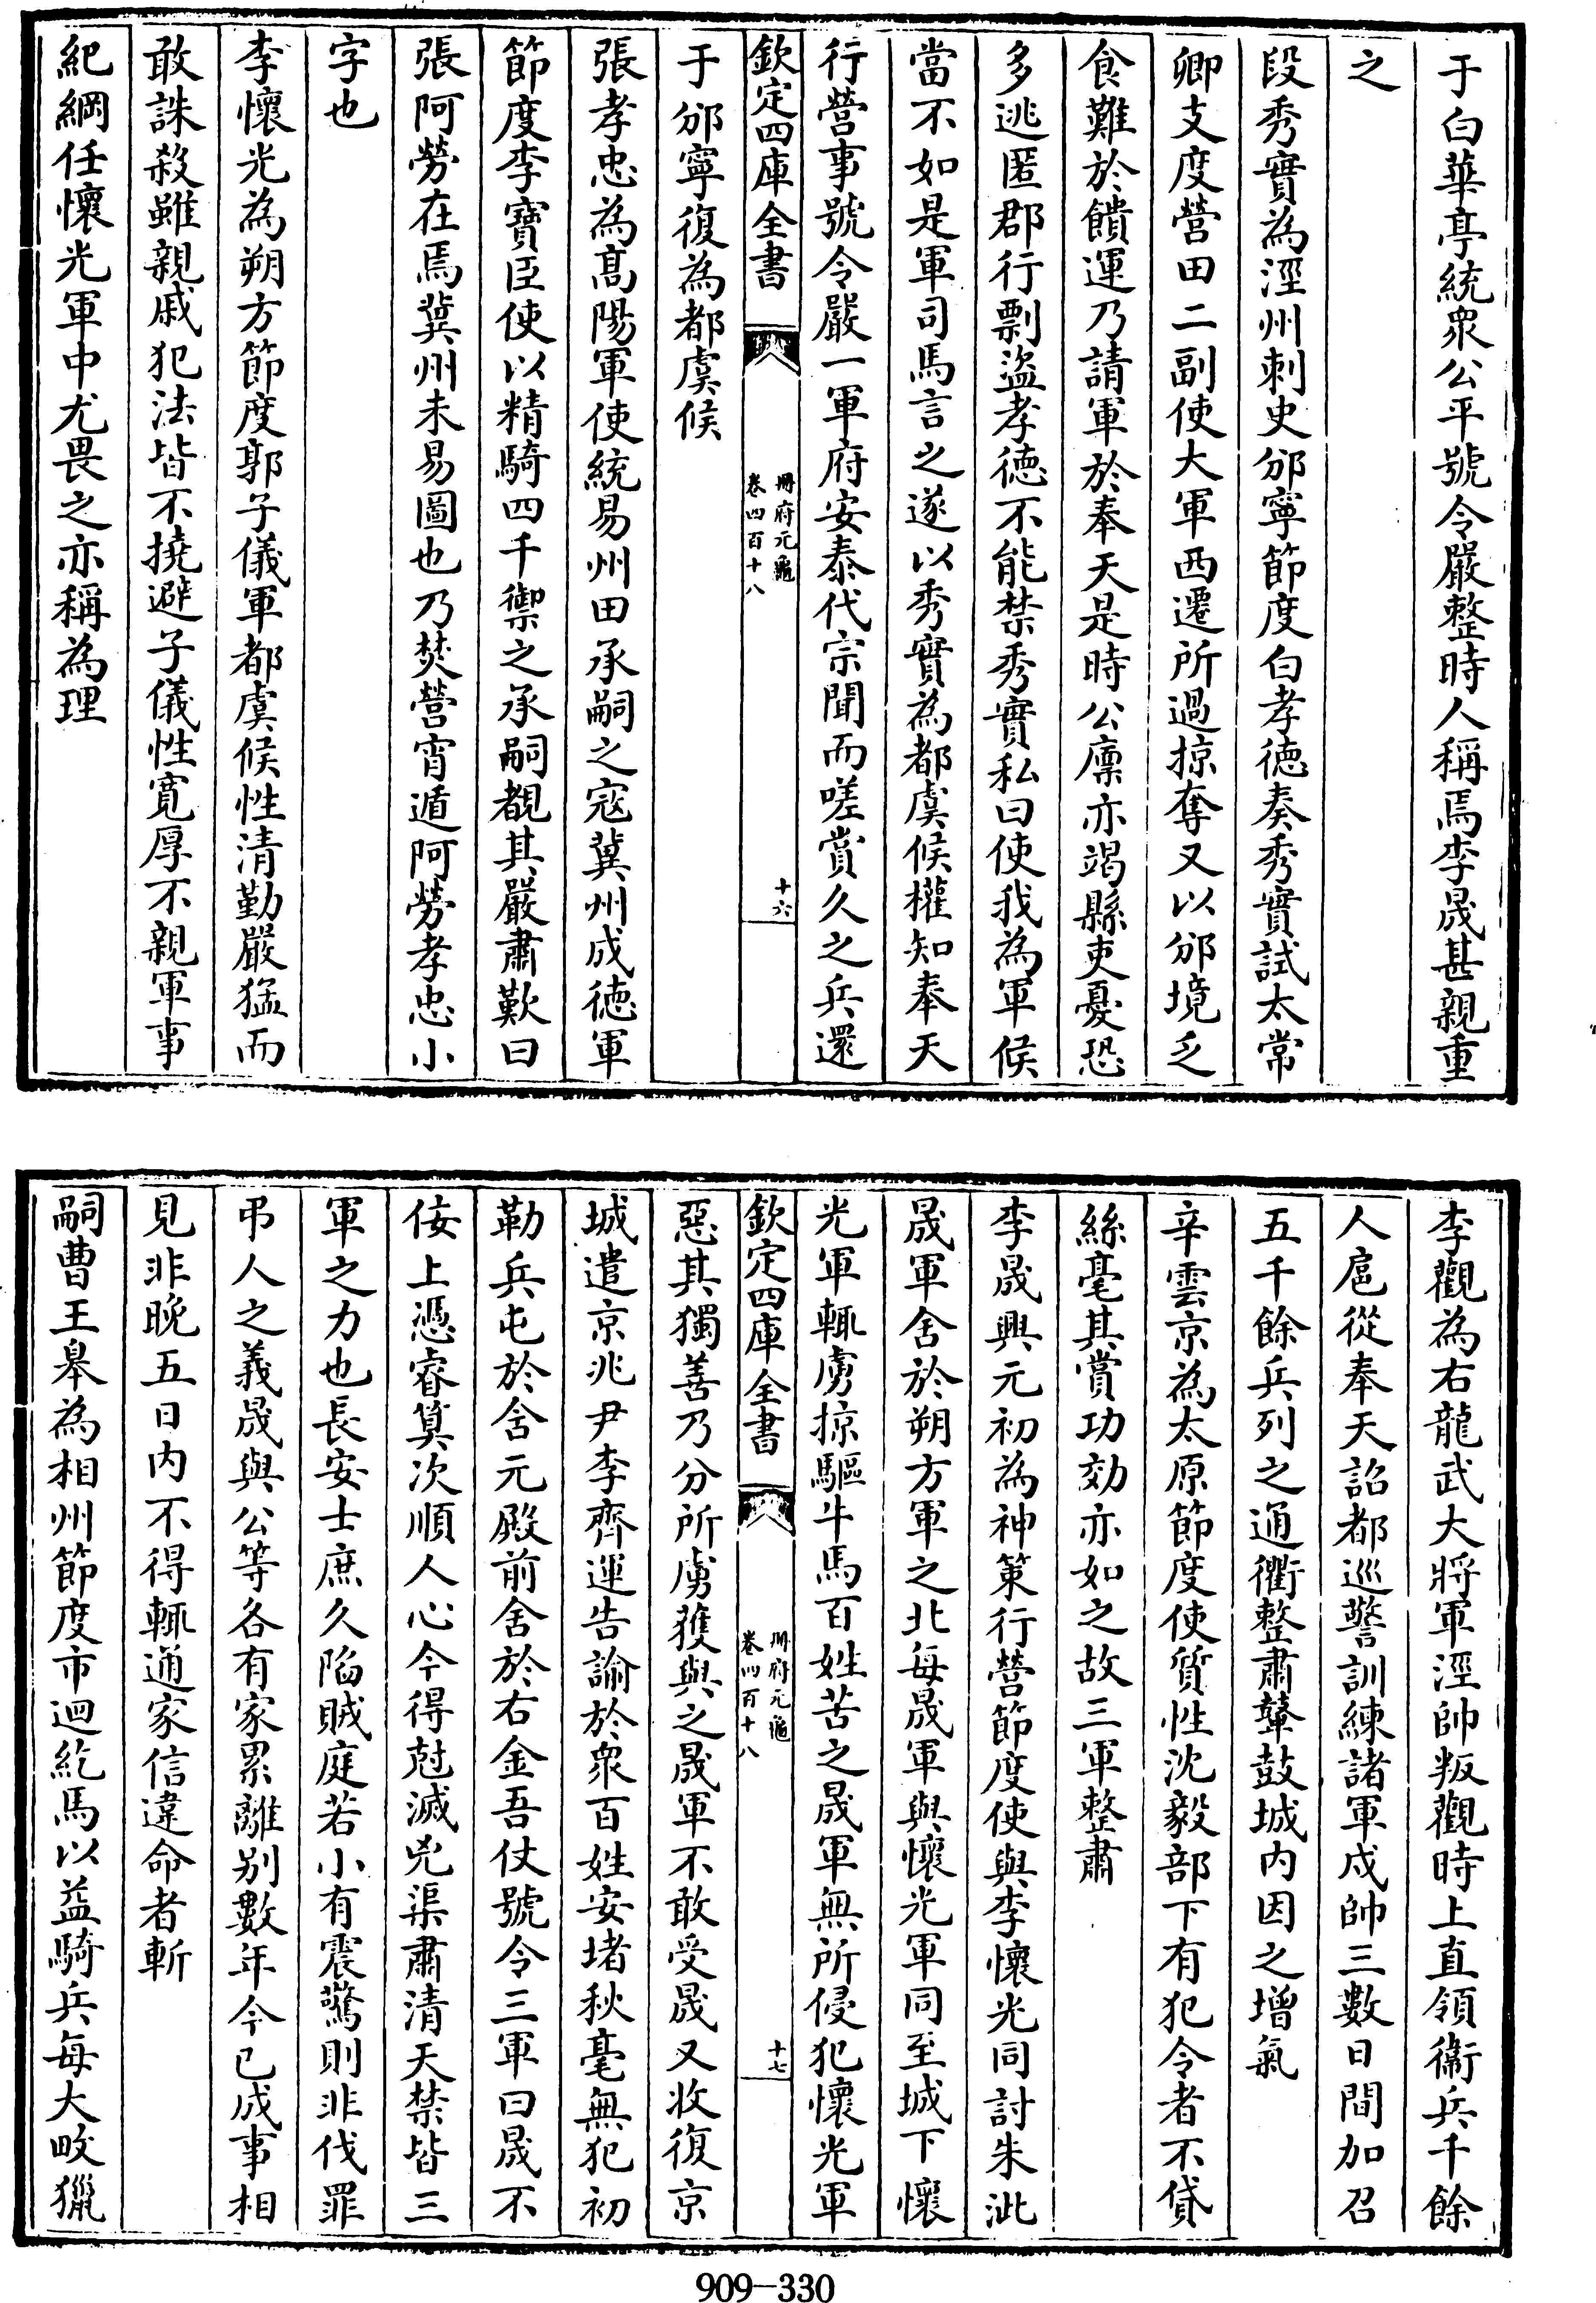 于白華亭統衆公平號令嚴整時人稱焉李晟甚親重
之
段秀實為涇州刺史邠寧節度白孝徳奏秀實試太常
卿支度營田二副使大軍西遷所過掠奪又以邠境乏
食難於饋運乃請軍於奉天是時公廪亦竭縣吏憂恐
多逃匿郡行剽盜孝徳不能禁秀實私曰使我為軍候
當不如是軍司馬言之遂以秀實為都虞候權知奉天
行營事號令嚴一軍府安泰代宗聞而嗟賞久之兵還
欽定四庫全書
冊府元龜
卷四百十八
十六
于邠寧復為都虞候
張孝忠為髙陽軍使統易州田承嗣之寇冀州成徳軍
節度李寶臣使以精騎四千禦之承嗣覩其嚴肅歎曰
張阿勞在焉冀州未易圖也乃焚營宵遁阿勞孝忠小
字也
李懷光為朔方節度郭子儀軍都虞候性清勤嚴猛而
敢誅殺雖親戚犯法皆不撓避子儀性寛厚不親軍事
紀綱任懷光軍中尤畏之亦稱為理
李觀為右龍武大將軍涇帥叛觀時上直領衞兵千餘
人扈從奉天詔都巡警訓練諸軍戍帥三數日間加召
五千餘兵列之通衢整肅鼙鼓城内因之增氣
辛雲京為太原節度使質性沈毅部下有犯令者不貸
絲毫其賞功効亦如之故三軍整肅
李晟興元初為神䇿行營節度使與李懷光同討朱泚
晟軍舍於朔方軍之北每晟軍與懷光軍同至城下懷
光軍輒虜掠驅牛馬百姓苦之晟軍無所侵犯懷光軍
欽定四庫全書
冊府元龜
卷四百十八
十七
惡其獨善乃分所虜獲與之晟軍不敢受晟又收復京
城遣京兆尹李齊運告諭於衆百姓安堵秋毫無犯初
勒兵屯於含元殿前舍於右金吾仗號令三軍曰晟不
佞上憑睿算次順人心今得尅滅兇渠肅清天禁皆三
軍之力也長安士庶久陷賊庭若小有震驚則非伐罪
弔人之義晟與公等各有家累離别數年今已成事相
見非晚五日内不得輒通家信違命者斬
嗣曹王皋為相州節度市迴紇馬以益騎兵每大畋獵
909-330